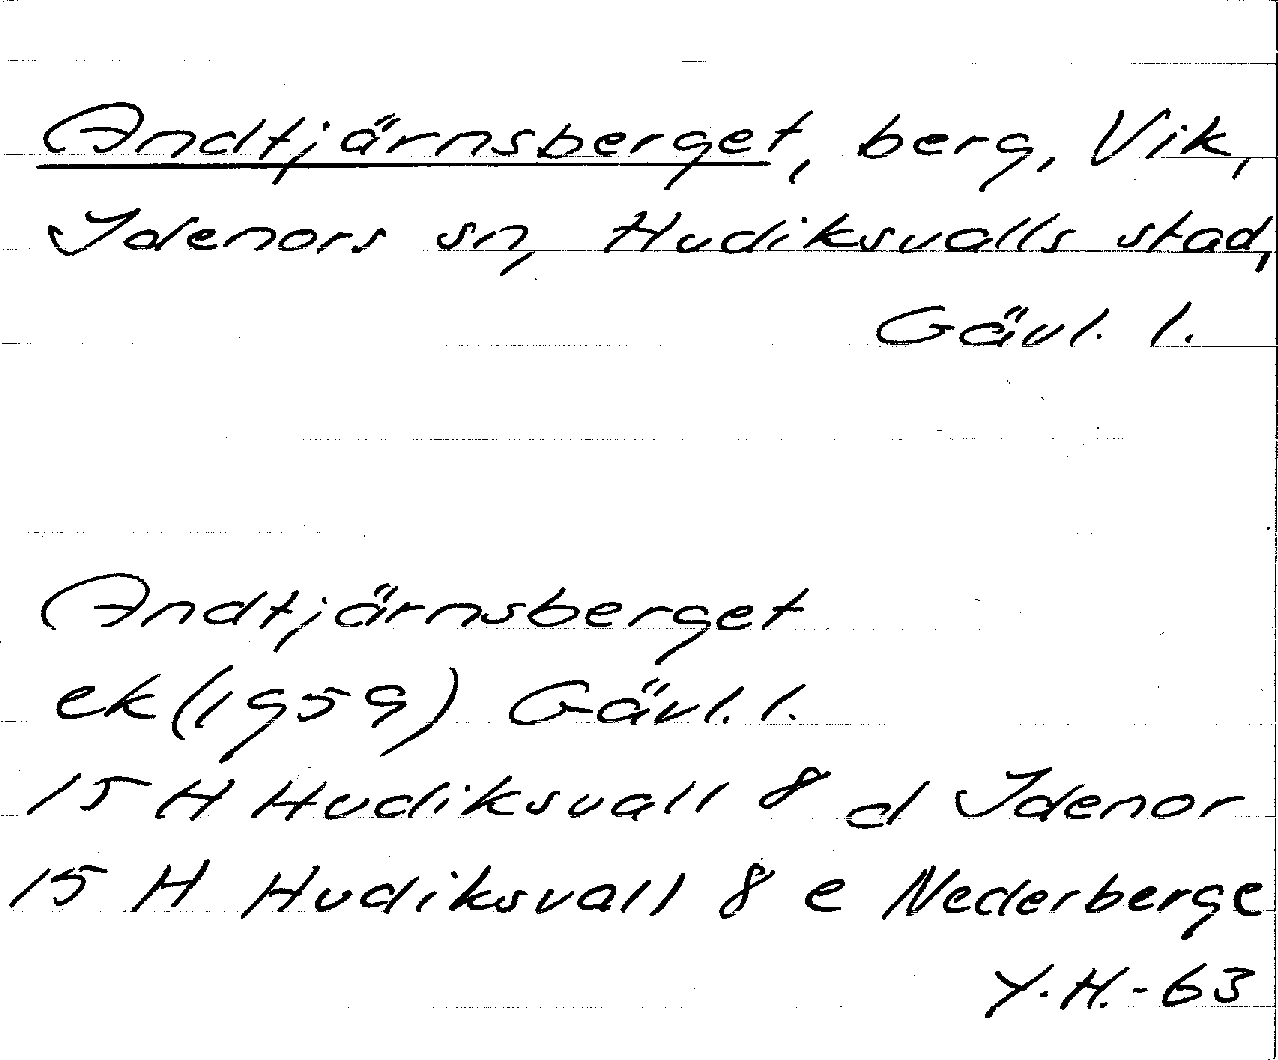 Andtjärnsberget, berg, Vik,
Idenors sn, Hudiksvalls stad,
Gävl. l.
Andtjärnsberget
ek (1959) Gävl. l.
15 H Hudiksvall 8 d Idenor
15 H Hudiksvall 8 e Nederberge
Y.H.-63